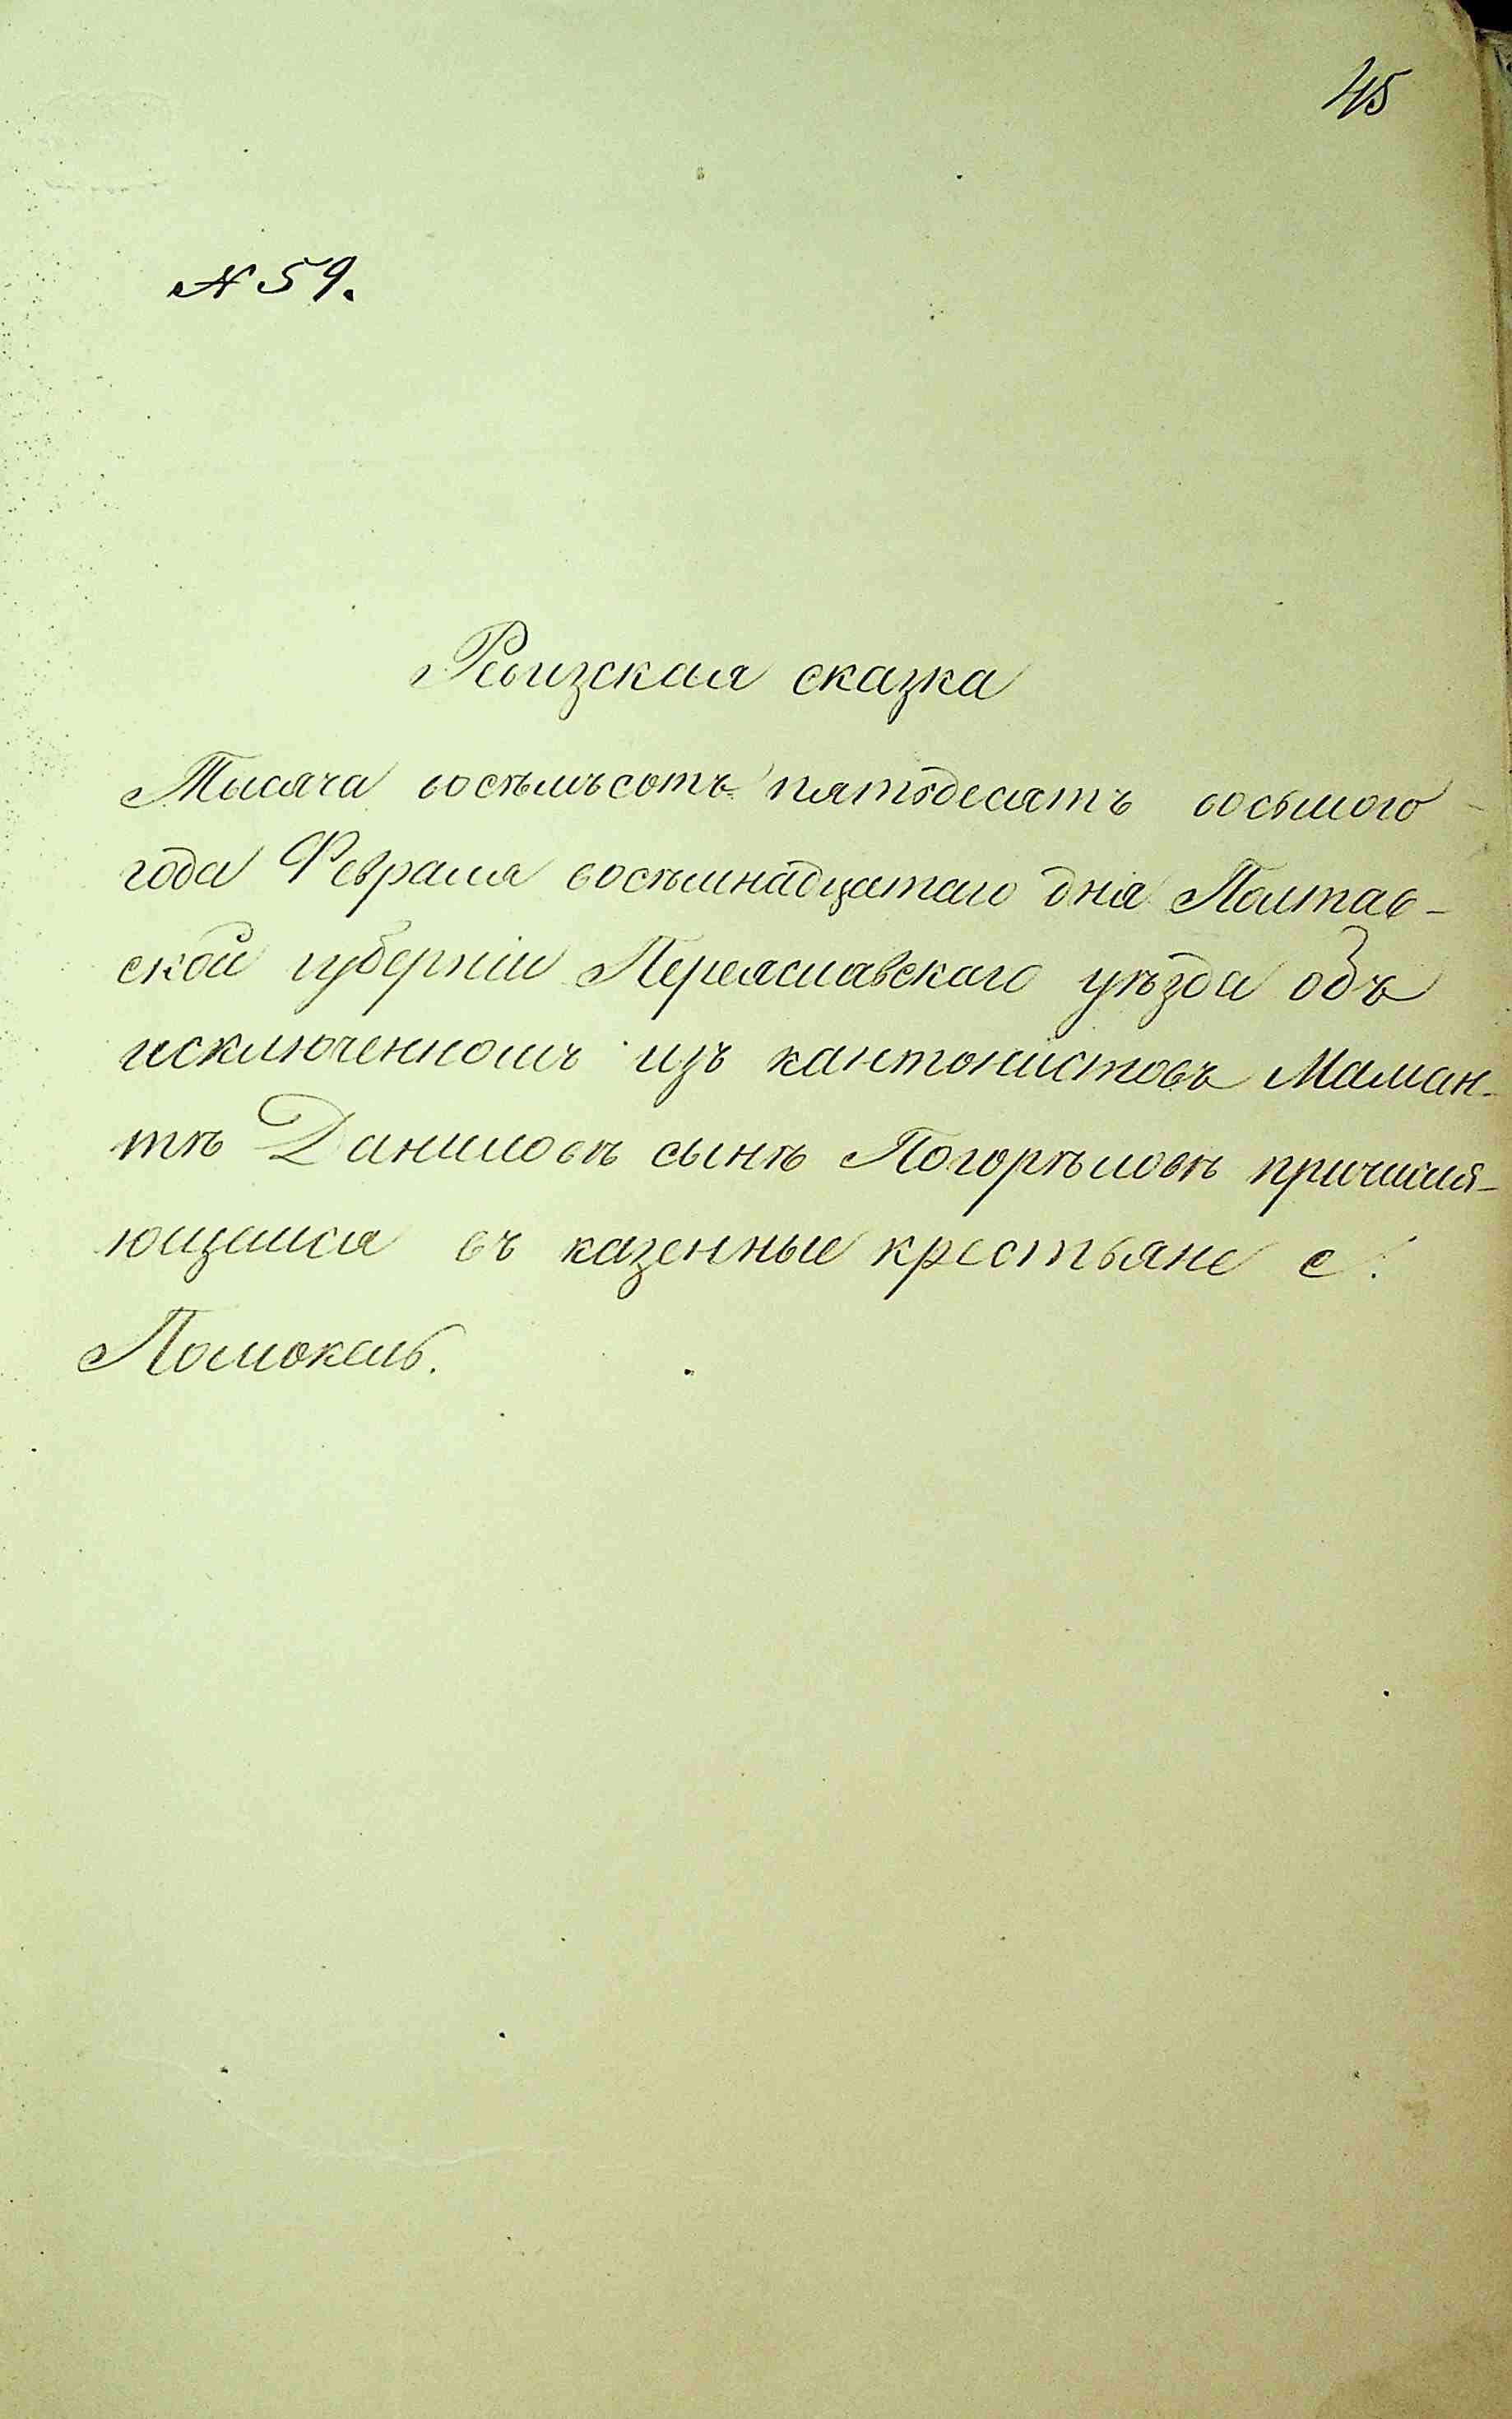 45
№ 59.
Ревизская сказка
Тысяча восѣмьсотъ пятьдесятъ восьмого
года Февраля восѣмнадцатаго дня Полтав-
ской губерніи Переяславскаго уѣзда объ
исключенномъ изъ кантонистовъ Маман-
тѣ Даниловѣ сынѣ Погорѣловѣ причисля-
ющемся въ казенные крестьяне с.
Помокель.